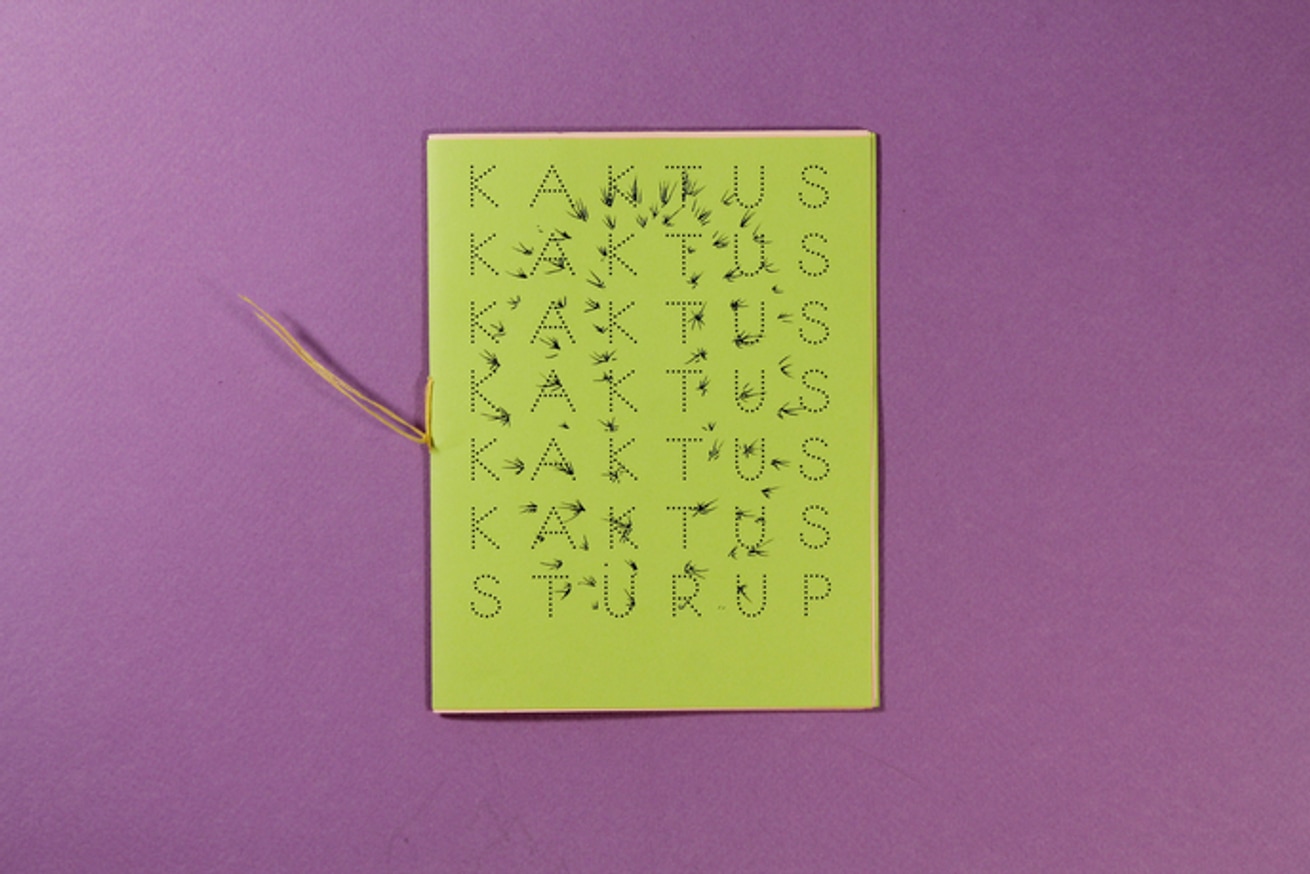 KAKTUS
KAKTUS
KAKTUS
KAKTUS
KAKTUS
KAKTUS
STURUP